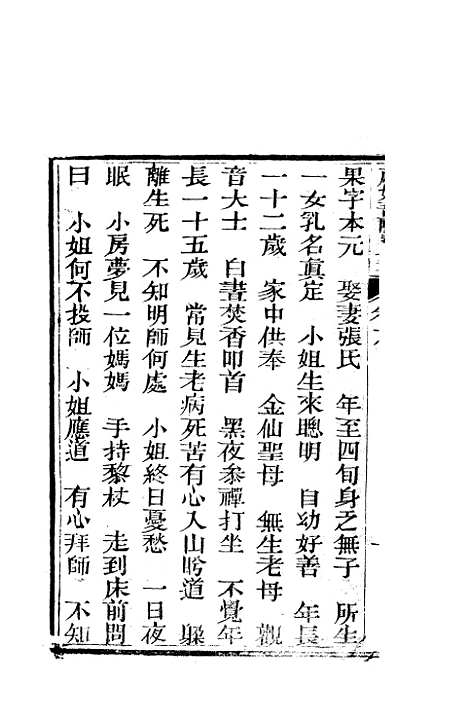 果字本元　娶妻張氏　年至四旬身乏無子　所生
一女乳名眞定　小姐生來聰明　自幼好善　年長
一十二歲　家中供奉　金仙聖母　無生老母　觀
音大士　白晝焚香叩首　黑夜參禪打坐　不覺年
長一十五歲　常見生老病死苦有心入山脩道　躱
離生死　不知明師何處　小姐終日憂愁　一日夜
眠　小房夢見一位媽媽　手持藜杖　走到床前問
曰　小姐何不投師　小姐應道　有心拜師　不知